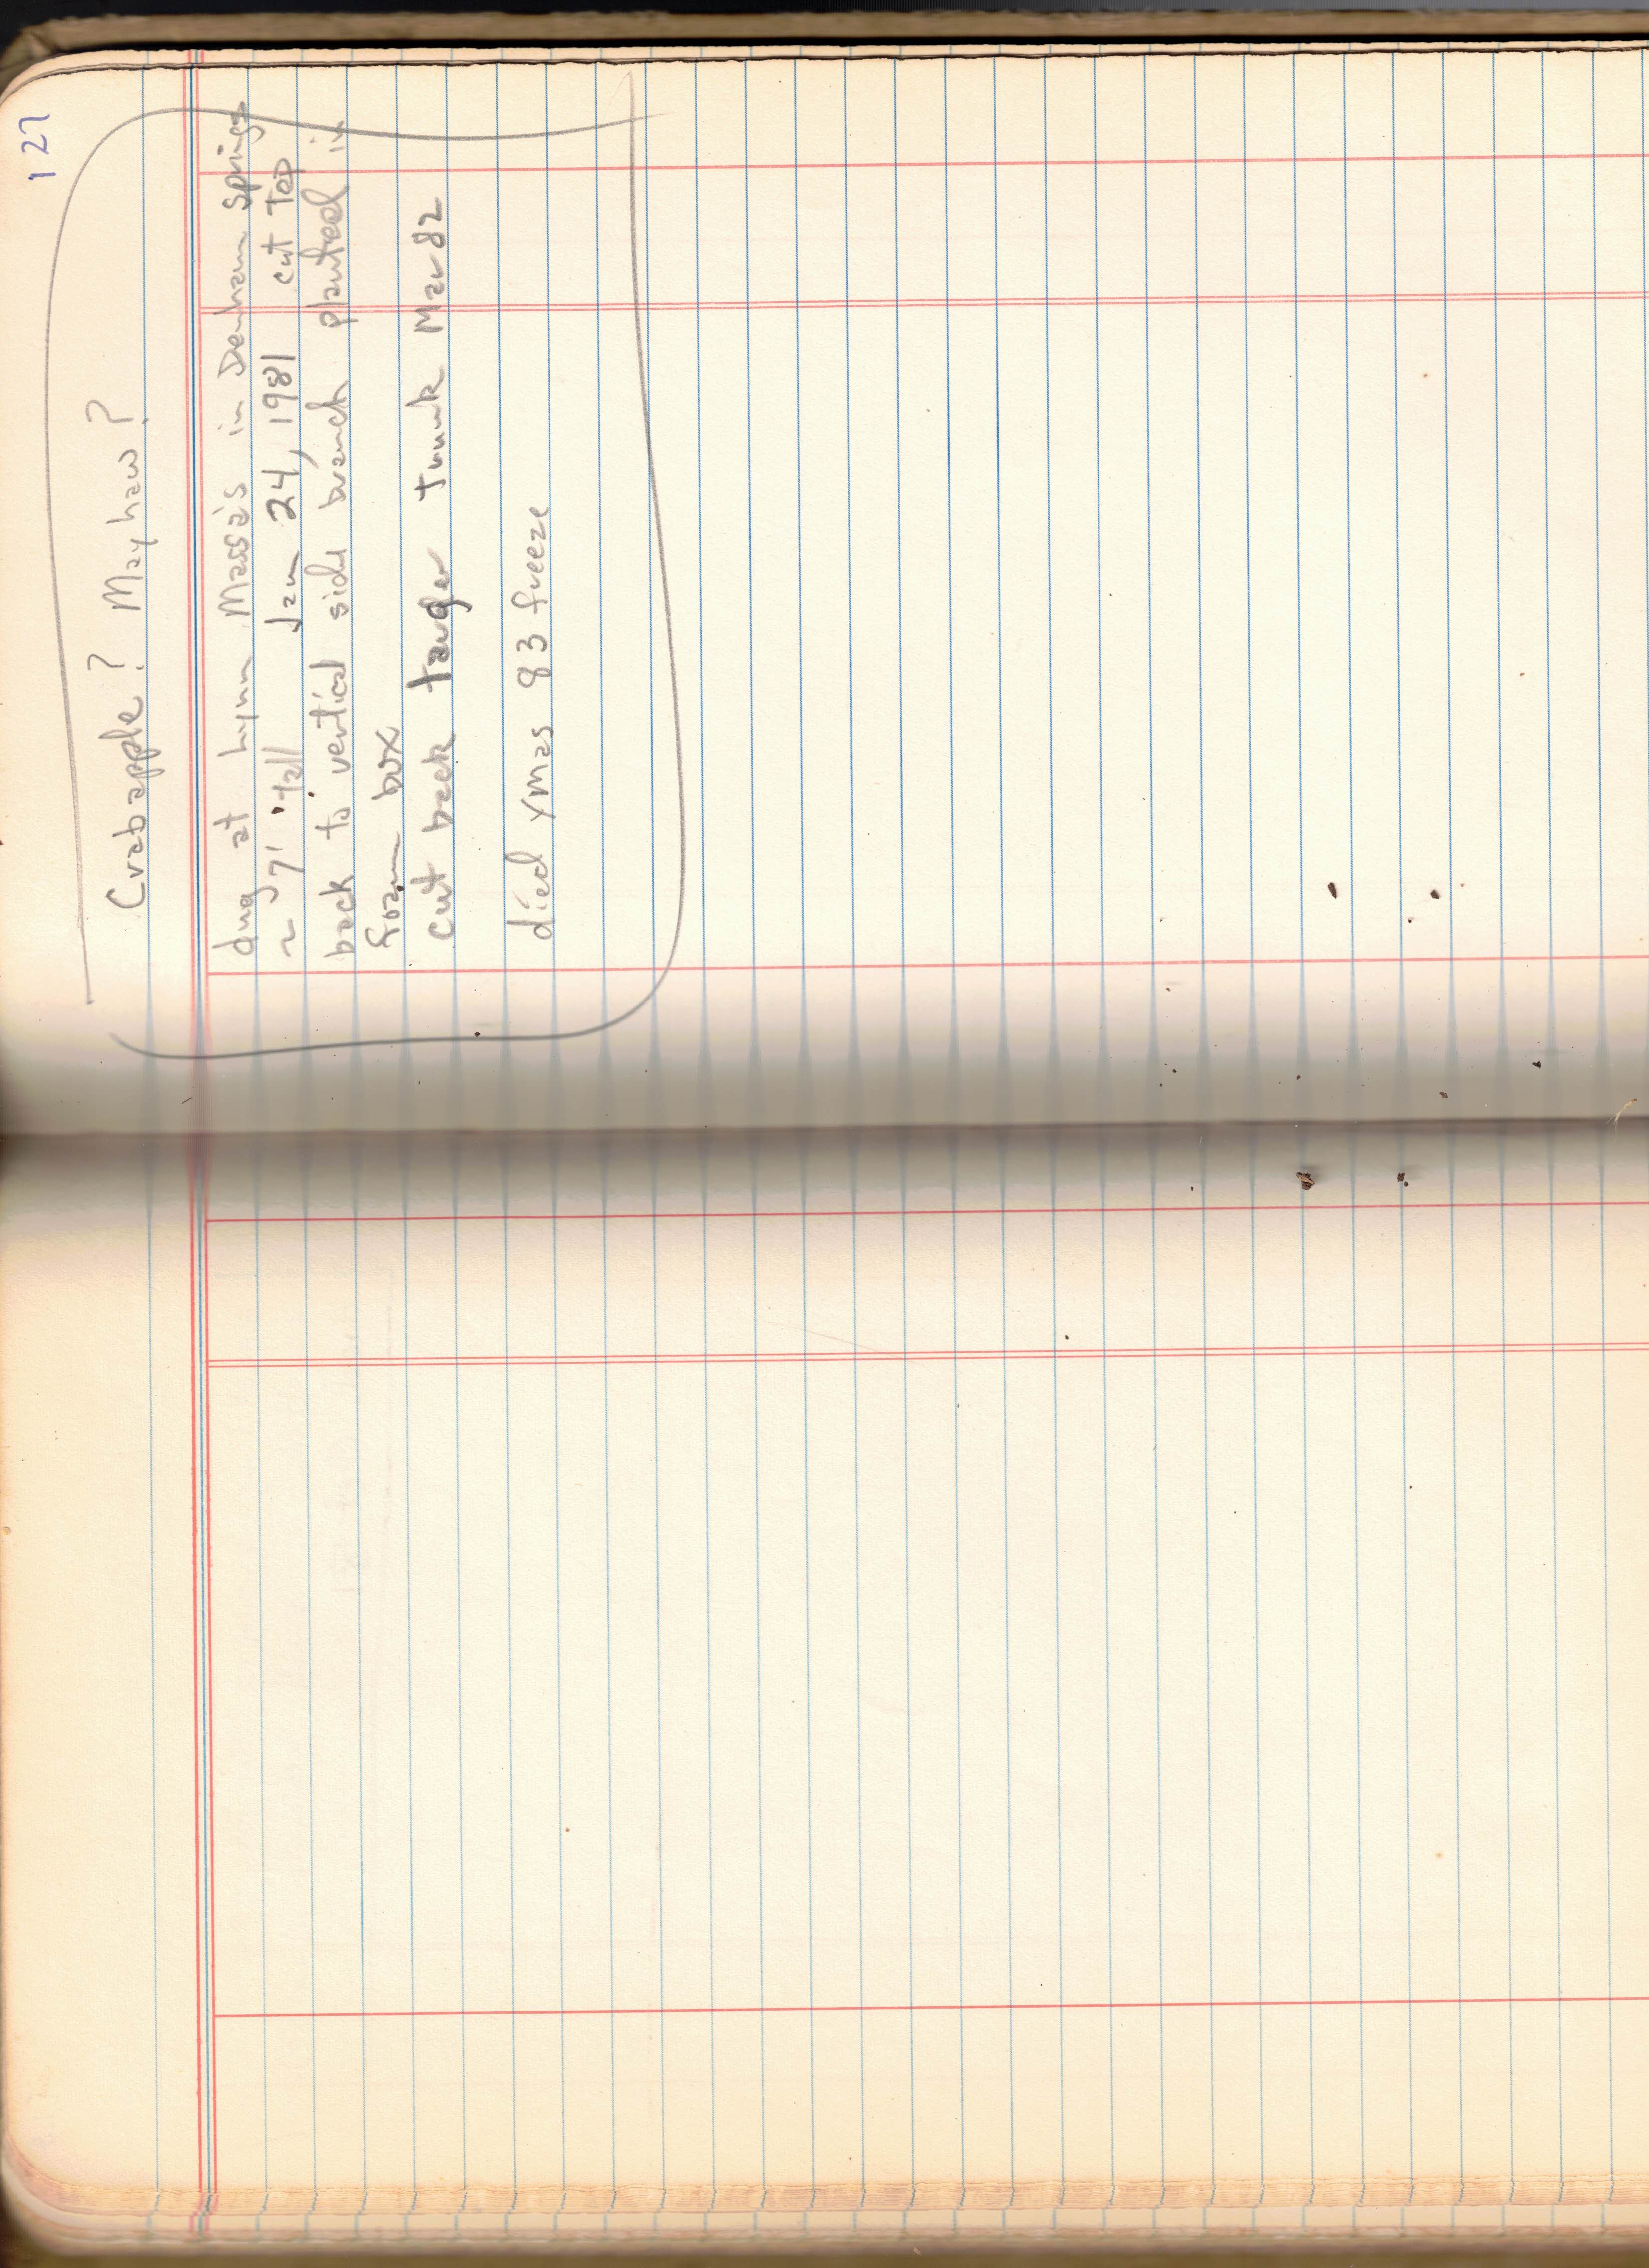 127
Crabapple? Mayhaw?
dug at Lynn Massa's in Denham springs
~ 7' tall Jan 24, 1981 cut top
back to vertical side branch planted in
foam box
cut back trunk Mar 82
died xmas 83 freeze